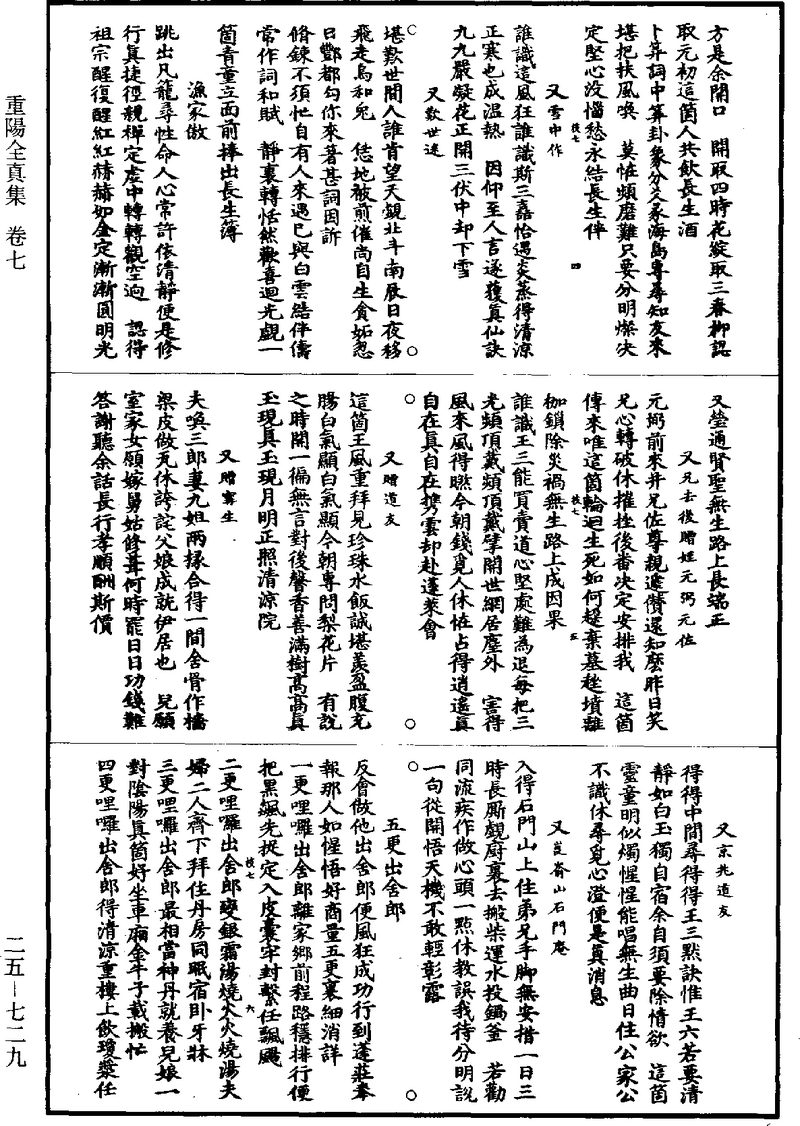 重陽全真集　卷七
方是余開口　開取四時花綻取三春柳認
取元初這箇人共飲長生酒
卜算詞中算卦象分爻象海島專尋知友來
堪把扶風喚　莫恠頻磨難只要分明燦決
定堅心没惱愁永結長生伴
又雪中作
誰識這風狂誰識斯三嘉恰遇炎蒸得清凉
正寒也成温熱　因仰至人言遂獲真仙訣
九九嚴凝花正開三伏中却下雪
又歎世迷
堪歎世間人誰肯望天觀北斗南辰日夜移
飛走烏和兔　恁地被煎催尚自生貪妬忽
日酆都勾你來著甚詞因訴
脩鍊不須忙自有人來遇已與白雲結伴儔
常作詞和賦　靜裏轉恬然歡喜迴光覷一
箇青童立面前捧出長生簿
漁家傲
跳出凡籠尋性命人心常許依清靜便是修
行真捷徑親禪定虚中轉轉觀空迥　認得
祖宗醒復醒紅紅赫赫如金定漸漸圓明光
又瑩通賢聖無生路上長端正
又兄去後贈姪元弼元佐
元弼前來并兄佐尊親遽儹還知麽昨日笑
兄心轉破休摧挫後畨决定安排我　這箇
傳來唯這箇輪迴生死如何趖棄墓趖墳離
枷鎖除災禍無生路上成因果
誰識王三能買賣道心堅處難為退每把三
光頻頂戴頻頂戴擘開世網居塵外　害得
風來風得㬠今朝錢覓人休恠占得逍遥真
自在真自在携雲却赴蓬萊會
又贈道友
這箇王風重拜見珍珠水飯誠堪羨盈腹充
腸白氣顯白氣顯今朝專問梨花片　有説
之時開一徧無言對後馨香善滿樹髙髙真
玉現真玉現月明正照清凉院
又贈寠生
夫喚三郎妻九姐兩掾合得一間舍骨作檣
梁皮做瓦休誇詫父娘成就伊居也　兒願
室家女願嫁舅姑修葺何時罷日日功錢難
答謝聽余話長行孝順酬斯價
又京兆道友
得得中間尋得得王三點訣惟王六若要清
靜如白玉獨自宿余自須要除情欲　這箇
靈童明似燭惺惺能唱無生曲日住公家公
不識休尋覓心澄便是真消息
又崑崙山石門庵
入得石門山上住弟兄手脚無安措一日三
時長厮覷厨裏去搬柴運水投鍋釜　若勸
同流疾作做心頭一㸃休教誤我待分明説
一句從開悟天機不敢輕彰露
五更出舍郎
反會做他出舍郎便風狂成功行到蓬莊奉
報那人如惺悟好商量五更裏細消詳
一更哩囉出舍郎離家鄉前程路穩排行便
把黑飇先捉定入皮囊牢封繫任飄颺
二更哩囉出舍郎變銀霜湯燒火火燒湯夫
婦二人齊下拜住丹房同眠宿卧牙牀
三更哩囉出舍郎最相當神丹就養兒娘一
對陰陽真箇好坐車廂金牛子載搬忙
四更哩囉出舍郎得清凉重樓上飲瓊漿任
二五—七二九